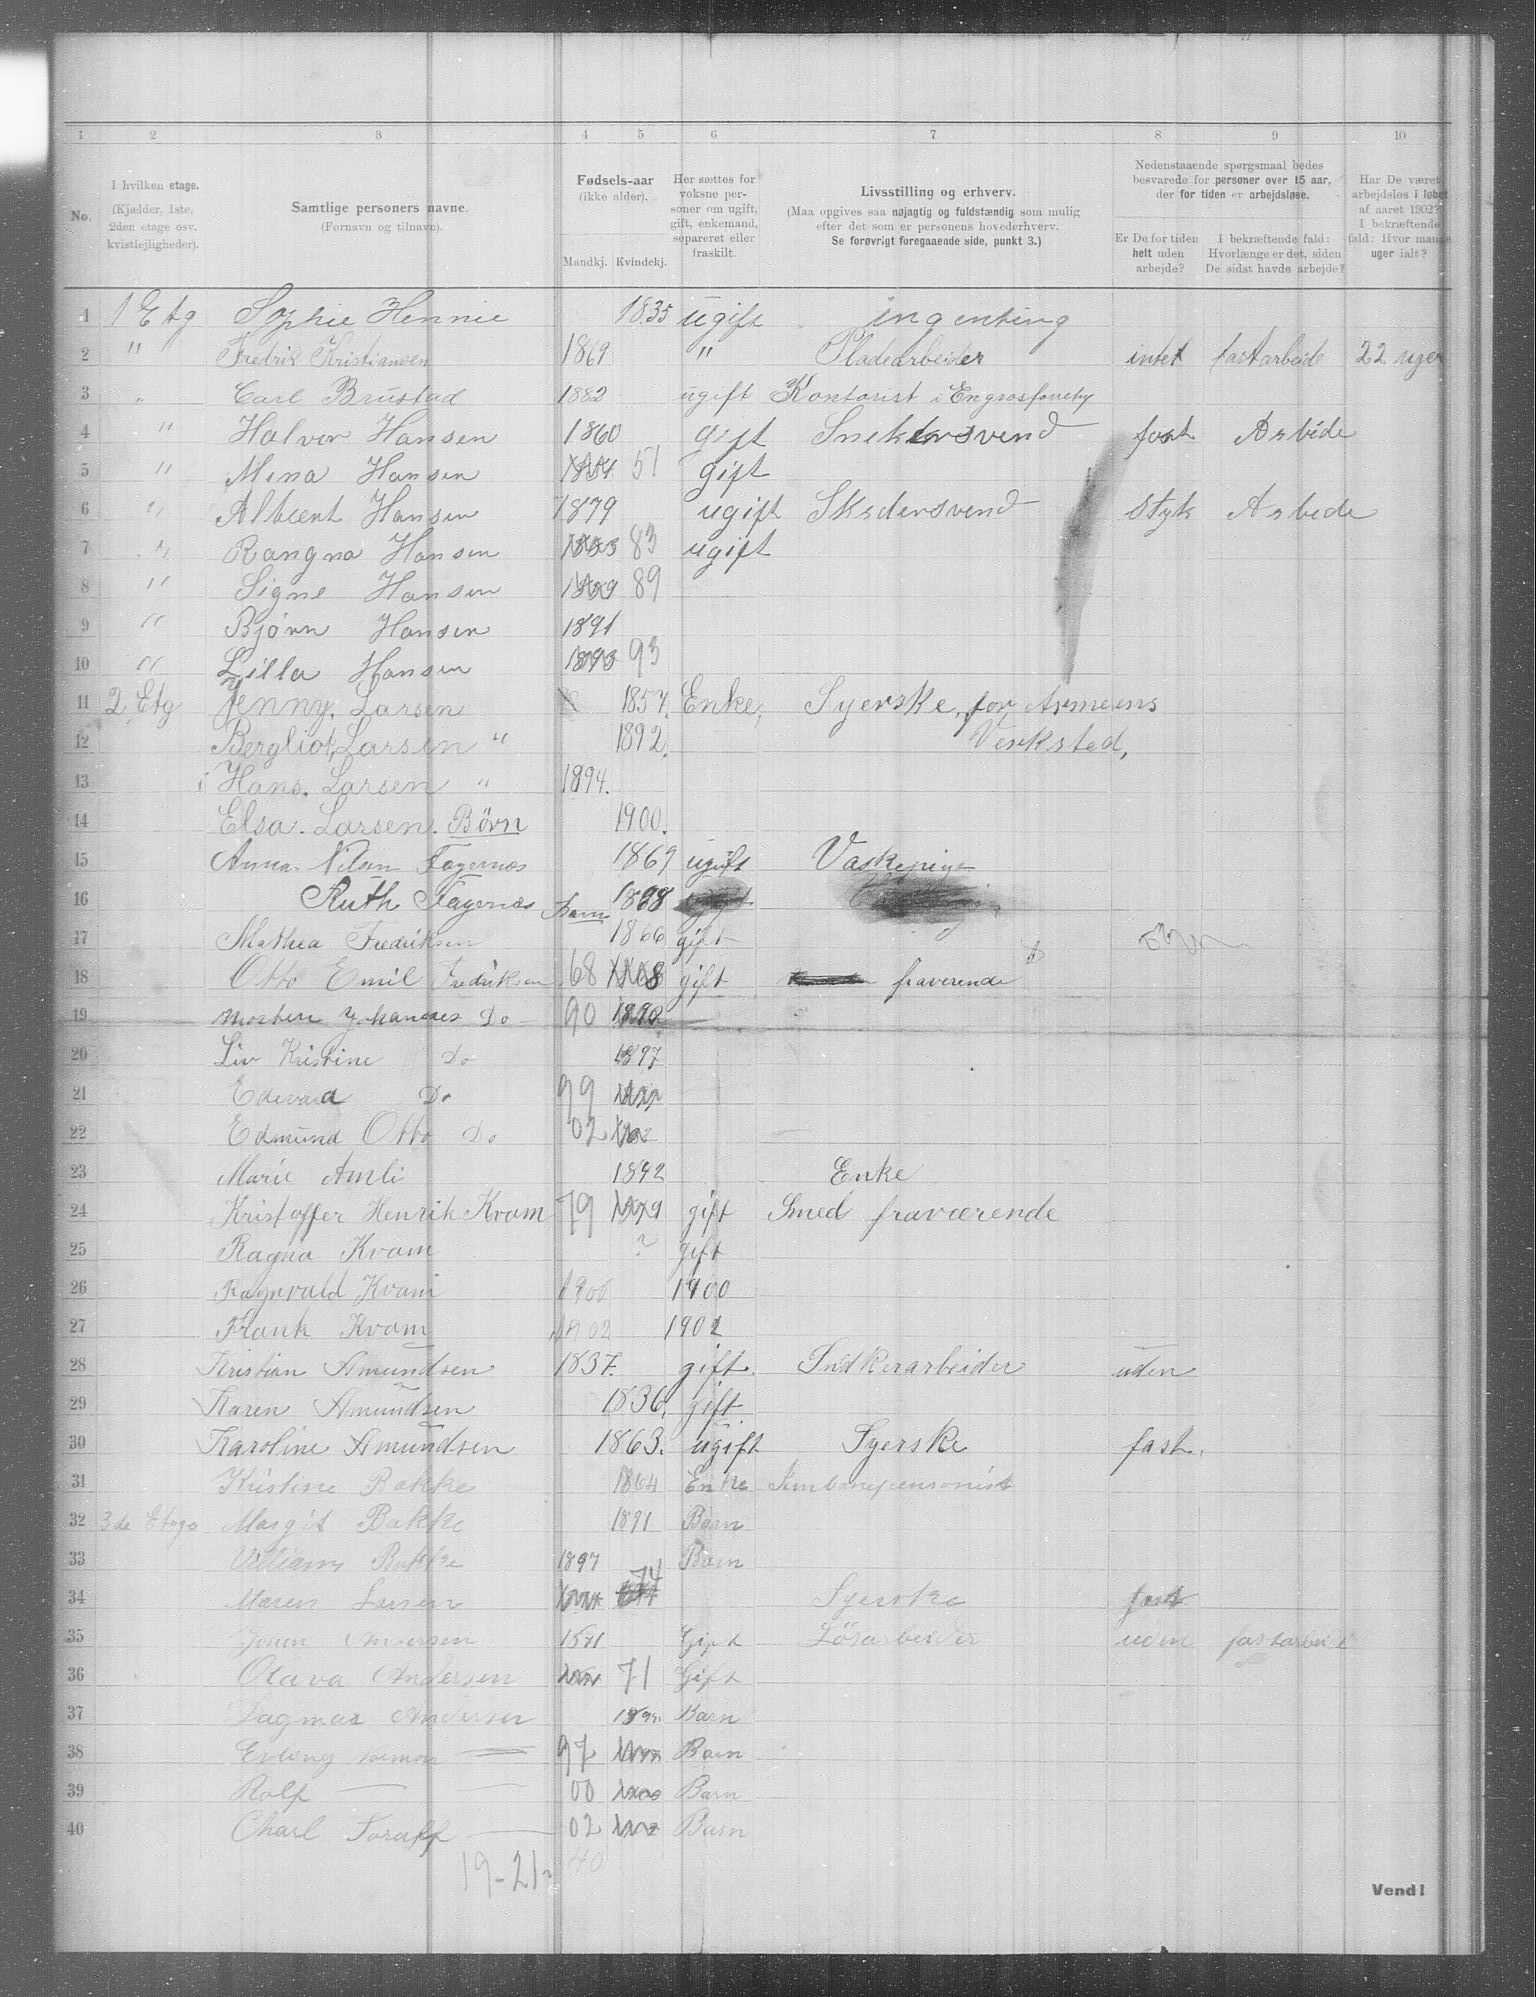 1 2 3 4 5 6 7 8 9 10
No.
I hvilken etage.
(Kjælder, 1ste,
2den etage osv.
kvistlejligheder).
Samtlige personers navne.
(Fornavn og tilnavn).
Fødsels-aar
(ikke alder).
Mandkj. Kvindekj.
Her sættes for
voksne per-
soner om ugift,
gift, enkemand,
separeret eller
fraskilt.
Livsstilling og erhverv.
(Maa opgives saa nøjagtig og fuldstændig som mulig
efter det som er personens hovederhverv.
Se forøvrigt foregaaende side, punkt 3.)
Nedenstaaende spørgsmaal bedes
besvarede for personer over 15 aar,
der for tiden er arbejdsløse.
Er De for tiden
helt uden
arbejde?
I bekræftende fald:
Hvorlænge er det, siden
De sidst havde arbejde?
Har De været
arbejdsløs i løbet
af aaret 1902?
I bekræftende
fald: Hvor mange
uger ialt?
1 1 Etg Sophie Hennie 1835 ugift ingenting
2 " Fredrik Kristiansen 1869 " Pladearbeider intet fastarbeide 22 uger
3 " Carl Brustad 1882 ugift Kontorist i
4 " Halvor Hansen 1860 gift fast Arbide
5 " Mina Hansen 51 gift
6 " Albert Hansen 1879 ugift styk Arbede
7 " Rangna Hansen 83 ugift
8 " Signe Hansen 89
9 " Bjørn Hansen 1891
10 " Lilla Hansen 1893 93
11 2 Etg Jenny. Larsen 1857. Enke, Syerske, for Armeens
12 Bergliot, Larsen " 1892. Verksted,
13 Hans. Larsen " 1894.
14 Elsa. Larsen. Børn 1900.
15 Anna Nilsen Fagernæs 1869 ugift Vaskepige
16 Ruth Fagernæs Barn 1888
17 Mathea Fredriksen 1866 gift
18 Otto Emil Fredriksen 68 gift fraverende
19 Morten Johannes Do 90
20 Liv Kristine Do 1897
21 Edevard Do 99
22 Edmund Otto Do 02
23 Marie Amli 1842 Enke
24 Kristoffer Henrik Kvam 79 gift Smed fraværende
25 Ragna Kvam ? gift
26 Ragnvald Kvam 1900 1900
27 Frank Kvam 1902 1902
28 Kristian Amundsen 1837. gift. Snedkerarbeider uden
29 Karen Amundsen 1836, gift
30 Karoline Amundsen 1863. ugift Syerske fast.
31 Kristine Bakke 1864 Enke
32 3de Etage Margit Bakke 1891 Barn
33 Villiam Bakke 1897 Barn
34 Maren Larsen 74 Syerske fast
35 Andersen 1871 Gift Løsarbeider uden fastarbeide
36 Olava Andersen 71 Gift
37 Dagmar Andersen Barn
38 Erling 97 Barn
39 Rolf 00 Barn
40 Charl 02 Barn
19-21 40
Vend!